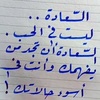 السعادة ..
ليست في الحب .
السعادة أن تجد من
يفهمك وأنت في
أسوء حالاتك !